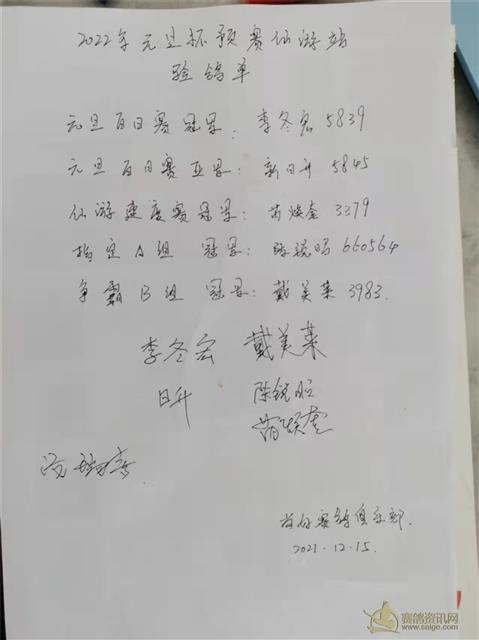 2022年元旦杯预赛仙游站
验鸽单
元旦百日赛冠军：李冬宏 5839
元旦百日赛亚军：新日升 5845
仙游速度赛冠军：黄焕奎 3379
指定A组 冠军：陈锐鸣 660564
争霸B组 冠军：戴美莱 3983.
李冬宏 戴美莱
日升 陈锐
赛鸽俱乐部.
2021.12.15.
赛鸽资讯网
www.saige.com